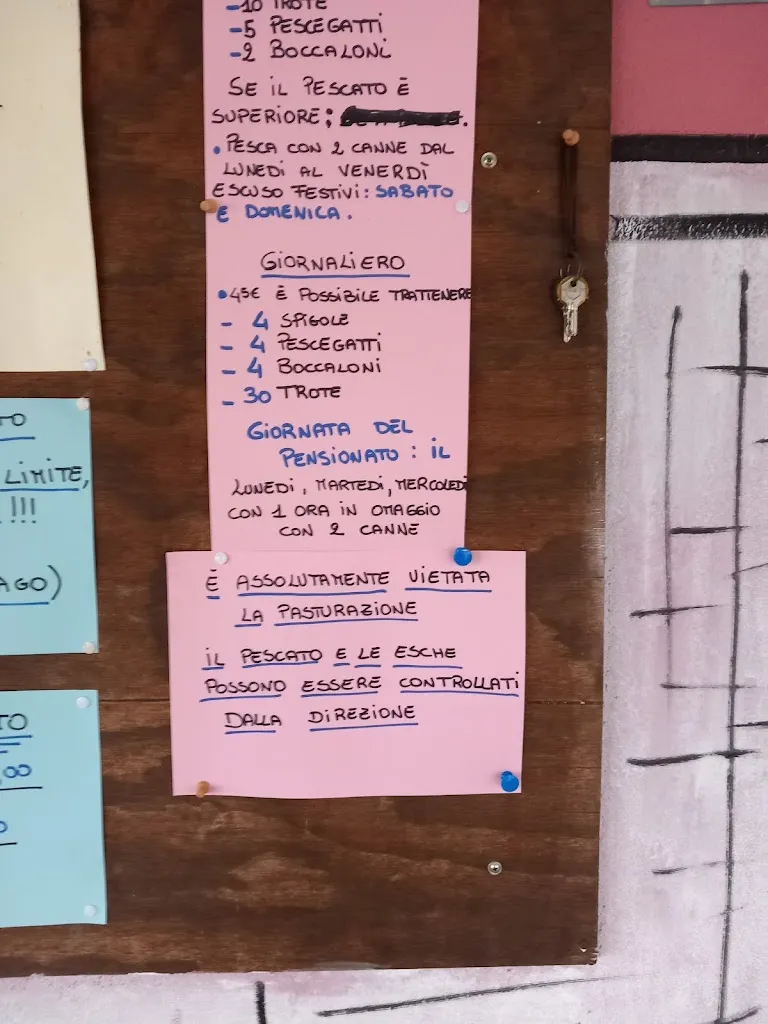 -10 TROTE
-5 PESCEGATTI
-2 BOCCALONI
SE IL PESCATO È
SUPERIORE:
• PESCA CON 2 CANNE DAL
LUNEDì AL VENERDÌ
ESCUSO FESTIVI: SABATO
E DOMENICA.
GIORNALIERO
• 45€ È POSSIBILE TRATTENERE
- 4 SPIGOLE
- 4 PESCEGATTI
- 4 BOCCALONI
- 30 TROTE
GIORNATA DEL
PENSIONATO: IL
LUNEDì, MARTEDì, MERCOLEDì
CON 1 ORA IN OMAGGIO
CON 2 CANNE
È ASSOLUTAMENTE VIETATA
LA PASTURAZIONE
IL PESCATO E LE ESCHE
POSSONO ESSERE CONTROLLATI
DALLA DIREZIONE
TO
LIMITE,
!!!
AGO)
TO
,00